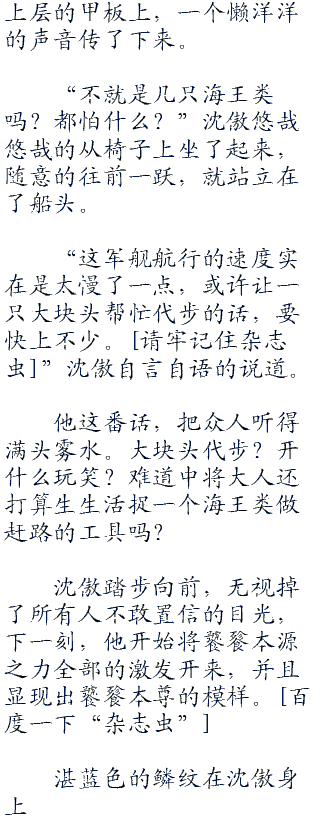 上层的甲板上，一个懒洋洋
的声音传了下来。
“不就是几只海王类
吗？都怕什么？”沈傲悠哉
悠哉的从椅子上坐了起来，
随意的往前一跃，就站立在
了船头。
“这军舰航行的速度实
在是太慢了一点，或许让一
只大块头帮忙代步的话，要
快上不少。[请牢记住杂志
虫]”沈傲自言自语的说道。
他这番话，把众人听得
满头雾水。大块头代步？开
什么玩笑？难道中将大人还
打算生生活捉一个海王类做
赶路的工具吗？
沈傲踏步向前，无视掉
了所有人不敢置信的目光，
下一刻，他开始将饕餮本源
之力全部的激发开来，并且
显现出饕餮本尊的模样。[百
度一下“杂志虫”]
湛蓝色的鳞纹在沈傲身
上